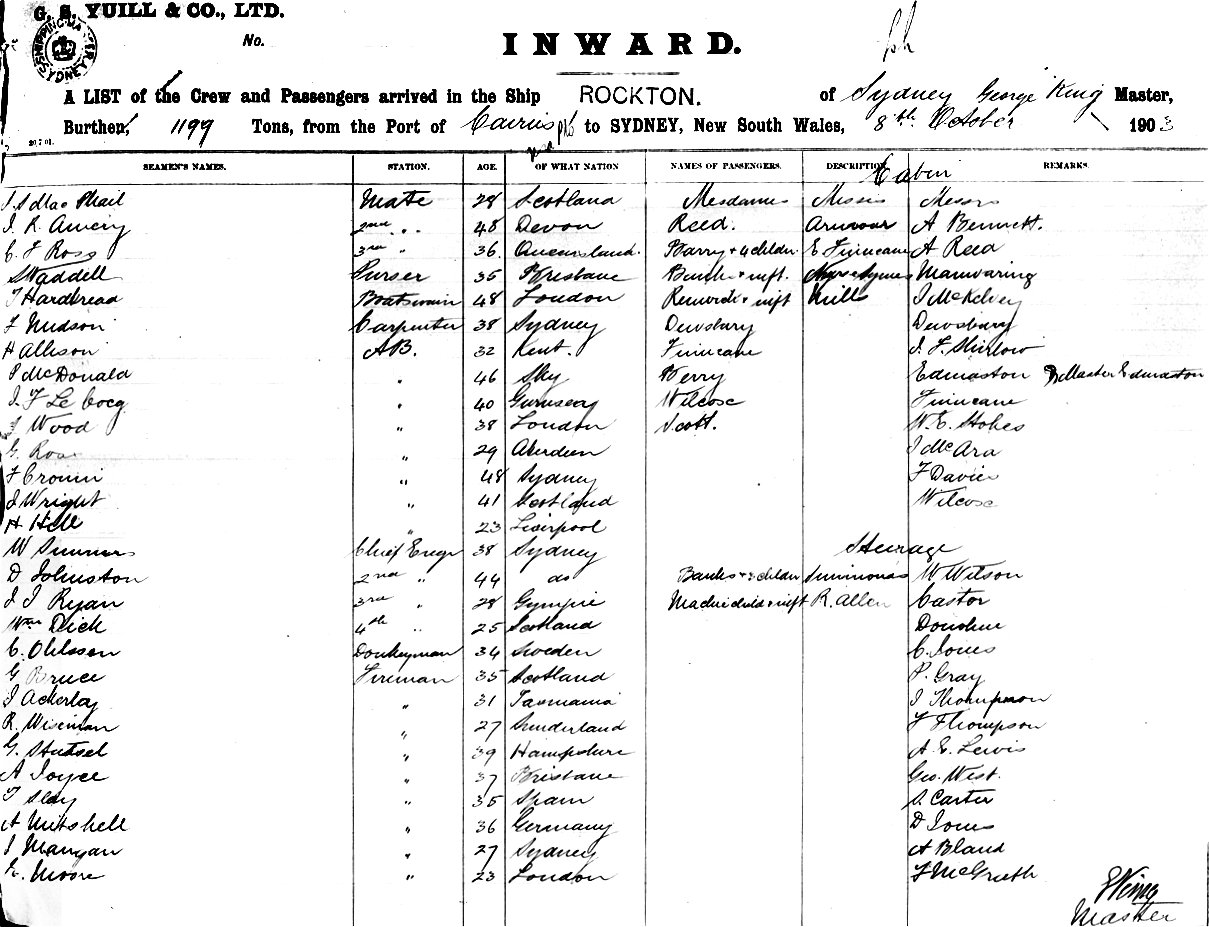 G. S. YUILL & CO., LTD.
SHIPPING MASTER SYDNEY
No.
INWARD.
A LIST of the Crew and Passengers arrived in the Ship ROCKTON. of Sydney George King Master,
Burthen, 1199 Tons, from the Port of Cairns to SYDNEY, New South Wales, 8th October 1903
20 7 01.
SEAMEN'S NAMES. STATION. AGE. OF WHAT NATION NAMES OF PASSENGERS. DESCRIPTION REMARKS.
Cabin
Mac Phail Mate 28 Scotland Mesdames Misses Messrs
J. R. Amery 2nd " 48 Devon Reed. Armour A Bennett.
C. F Ross 3rd " 36 Queensland. Barry + 4 childn E Finucane A Reed
Waddell Purser 35 Brisbane + inft. Manwaring
T Hardbread Boatswain 48 London + inft Mills J McKelvey
F Hudson Carpenter 38 Sydney Dewsbury Dewsbury
H Allison AB. 32 Kent. Finucane J. F. Shirlow
P McDonald " 46 Sky Berry Edmaston & Master Edmaston
J. F Le Cocq " 40 Gurnsey Wilcose Finucane
J Wood " 38 London Scott. W. E. Stokes
G. Ross " 29 Aberdeen J McAra
F Cronin " 48 Sydney F Davies
J Wright " 41 Scotland Wilcose
H Hill " 23 Liverpool
W Summers Chief Engr 38 Sydney Steerage
D Johnston 2nd " 44 do Banks + 3 childn Simmonds W Wilson
J J Ryan 3rd " 28 Gympie child + inft R. Allen Castor
Wm Dick 4th " 25 Scotland Donohue
C. Ohlsson Donkeyman 34 Sweden C. Jones
G Bruce Fireman 35 Scotland P. Gray
J Ackerlay " 31 Tasmania J Thompson
R. Wiseman " 27 Sunderland F Thompson
G. Stutsel " 39 Hampshire A. E. Lewis
A Joyce " 37 Brisbane Geo. West.
T Slay " 35 Spain S. Carter
A Mitshell " 36 Germany D Jones
J Mangan " 27 Sydney A Bland
E. Moore " 23 London F McGrath
G King
Master